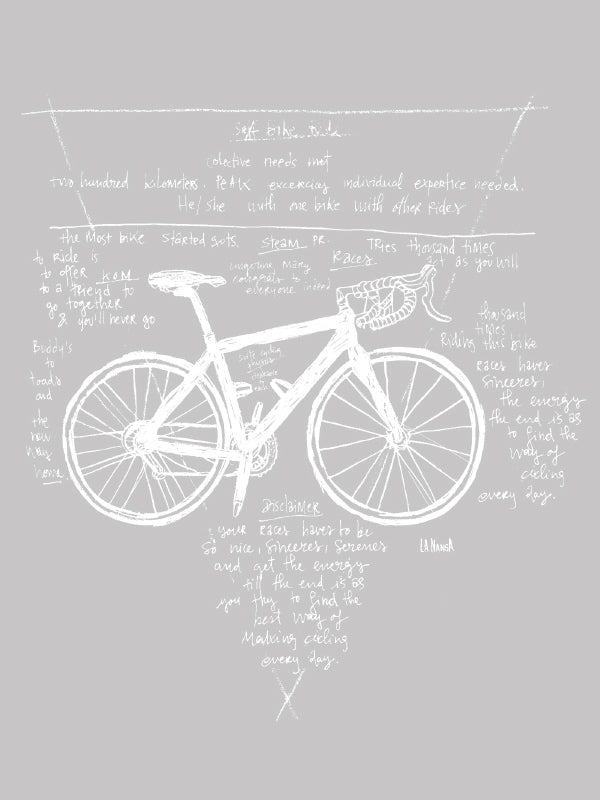 colective needs met
two hundred kilometers. PeAK excercing individual expertice needed.
He/she with one bike with other rides
the most bike started suts. STEAM PR.
Races
TRIES thousand times
act as you will
to ride is
to offer KOM
to a friend to
go together
& you'll never go
imagine many
congrats to
everyone indeed
Buddy's
to
toads
and
the
now
way
home.
thousand
times
Riding this bike
races haves
sinceres,
the energy
the end is as
to find the
way of
cicling
every day.
DISCLAIMER
your races haves to be
so nice, sinceres, serenes
and get the energy
till the end is as
you they to find the
best way of
Making cicling
every day.
LA NANGA